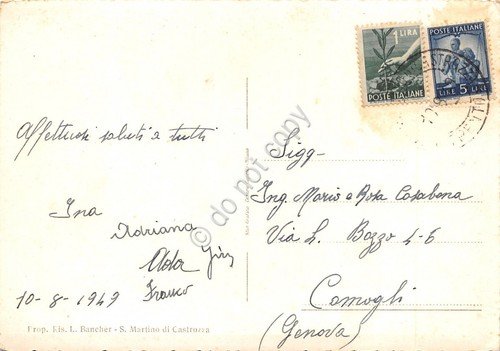 1 LIRA
POSTE ITALIANE
POSTE ITALIANE
LIRE 5 LIRE
Affettuosi saluti a tutti
Ina
Adriana
Alda
Franco
10-8-1947
Prop. Ris. L. Bancher - S. Martino di Castrozza
Sigg-
Ing. Mario e Rosa Casabona
Via L. Bozzo 4-6
Camogli
(Genova)
do not copy